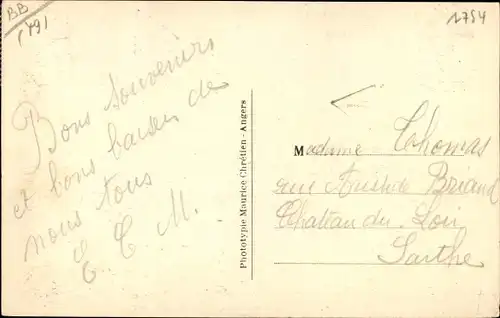 BB
(49)
1754
Bons souvenirs
et bons baisers de
nous tous
E C M.
Phototypie Maurice Chrétien - Angers
Madame Thomas
rue Aristide Briand
Chateau du Loir
Sarthe